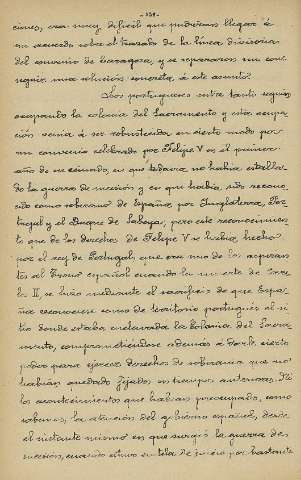 - 151 -
ciones, era muy difícil que pudiesen llegar á
un acuerdo sobre el trazado de la línea divisoria
del convenio de Zaragoza, y se separaron sin con-
seguir una solución concreta á este asunto.
Los portugueses entre tanto seguían
ocupando la colonia del Sacramento y esta ocupa-
ción venía á ser robustecida en cierto modo por
un convenio celebrado por Felipe V en el primer
año de su reinado, en que todavía no había estalla-
do la guerra de sucesión y en que había sido recono-
cido como soberano de España por Inglaterra, Por-
tugal y el Duque de Saboya; pero este reconocimien-
to que de los derechos de Felipe V se había hecho
por el rey de Portugal, que era uno de los aspiran-
tes al Trono español cuando la muerte de Carlos
II, se hizo mediante el sacrificio de que Espa-
ña reconociese como de territorio portugués el si-
tio donde estaba enclavada la Colonia del Sacra-
mento, comprometiéndose además á darle cierto
poder para ejercer derechos de soberanía que no
habían quedado fijados en tiempos anteriores.
los acontecimientos que habían preocupado, como
sabemos, la atención del gobierno español, desde
el instante mismo en que surgió la guerra de
sucesión, cuando estuvo en tela de juicio por bastante